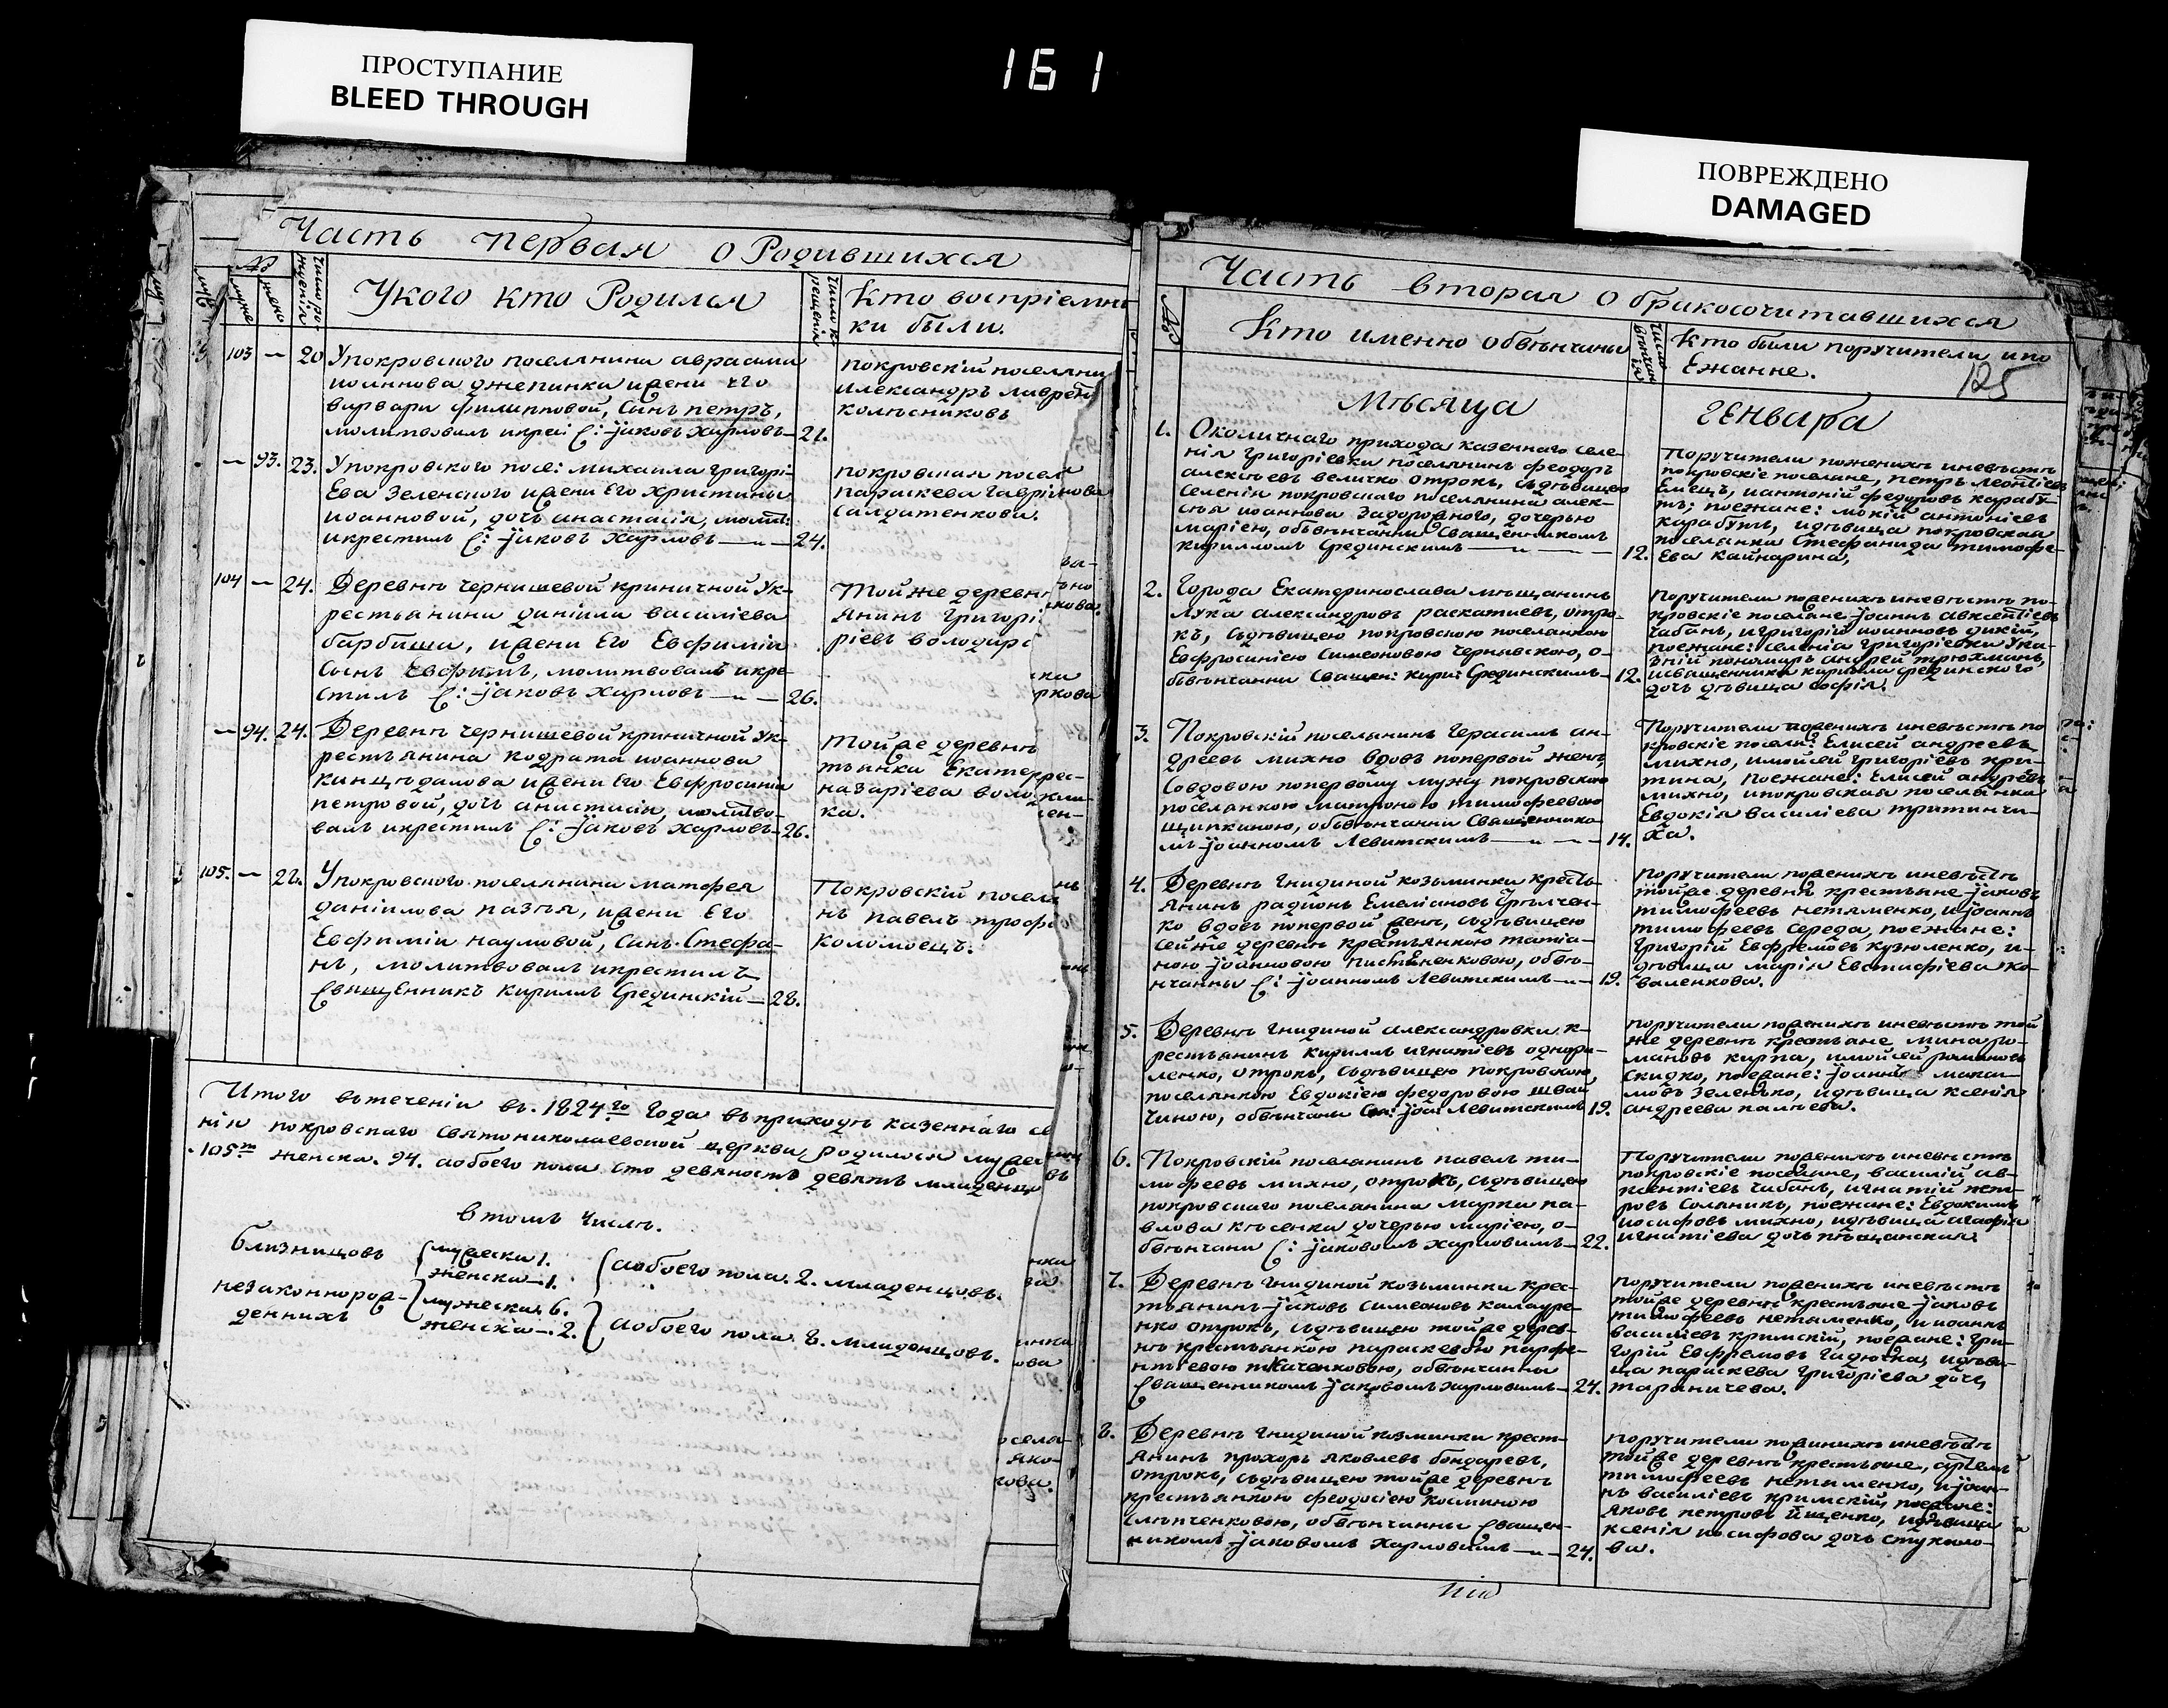 161
ПРОСТУПАНИЕ
BLEED THROUGH
ПОВРЕЖДЕНО
DAMAGED
Часть первая о Родившихся
У кого кто Родился
Кто воспріемни
ки были.
103 — 20
Упокровского поселянина авраама
иоаннова джепинки ижени его
варвари филипповой, Сынъ петръ,
молитвовалъ икрес: С: Їаковъ Харловъ — 21.
покровскій поселяни
александръ лаврен
колѣсниковъ
— 93. 23.
Упокровского посе: михаила григорі-
Ева Зеленского ижени Его христины
иоанновой, дочь анастасія, молит:
икрестилъ С: Їаковъ Харловъ — 24.
покровская посел
параскева гаврі
Салдатенкова.
104 — 24.
Деревнѣ чернышевой криничной Ук-
рестьянина даніила василіева
барбаша, ижени Его Евфиміи
Сынъ Евфимъ, молитвовалъ икре-
стилъ С: Їаковъ Харловъ — 26.
Тойже деревн
янинъ григорі
ріевъ володарс
— 94. 24.
Деревнѣ чернышевой криничной Ук-
рестьянина кодрата иоаннова
ижени Его Евфросиніи
петровой, дочь анастасія, молитво-
валъ икрестилъ С: Їаковъ Харловъ — 26.
Тойже деревнѣ
тьянка Екатер
назаріева воло
ка.
105. — 28.
Упокровского поселянина матфея
даніилова ижени Его
Евфиміи наумовой, Сынъ Стефа-
нъ, молитвовалъ икрестилъ
Священникъ Кириллъ Срединскій — 28.
Покровскій посел
нъ павелъ трофи
коломоецъ.
Итого втеченіи въ. 1824го Года въприходѣ казеннаго се
нію покровского Святониколаевской церкви родилося мужес
105т женска. 94. аобоего пола сто девяность девять младенцо
Втомъ Числѣ.
Близнищовъ
мужеска 1.
женска — 1.
аобоего пола. 2. младенцовъ.
незаконнорож-
денныхъ
мужеска. 6.
женска — 2.
аобоего пола. 8. младенцовъ.
Часть вторая о бракосочитавшихся
№
Кто именно обвѣнчаны
Кто были поручители ипо
Ежанне.
125
Мѣсяца
Генваря
1.
Околичнаго прихода казеннаго селе-
нія григоріевки поселянинъ феодоръ
алексѣевъ величко отрокъ, Сдѣвицею
Селенія покровскаго поселянина алек-
сѣя иоаннова Задорожного, дочерью
маріею, обвѣнчанны Священникомъ
кирилломъ Срединскимъ — 12.
Поручители поженихѣ иневѣстѣ
покровскіе поселяне, петръ леонтіевъ
Емецъ, иантоній федоровъ карабу-
тъ; поежане: мокій антоніевъ
карабутъ, идѣвица покровская
поселянка Стефанида тимофе-
Ева Кайнарина,
2.
Города Екатеринослава мѣщанинъ
Лука александровъ раскатиевъ, отро-
къ, Сдѣвицею покровскою поселянкою
Евфросиніею Симеоновою чернявскою, о-
бвѣнчанни Сващен: Кирил: Срединскимъ — 12.
Поручители поженихѣ иневѣстѣ по-
кровскіе поселяне Їоаннъ авксентіевъ
чабанъ, игригорій иоанновъ дикій,
поежане: селенія григоріевки Ука-
зній пономарь андрей трюхманъ,
исвященника кирилла срединского
дочь дѣвица софія.
3.
Покровскій поселянинъ Герасимъ ан-
дреевъ михно вдовъ попервой женѣ
Совдовою попервому мужу покровскою
поселянкою матроною тимофеевою
щипкиною, обвѣнчанни Священнико-
мъ Їоанномъ Левитскимъ — 14.
Поручители поженихѣ иневѣстѣ по
кровскіе посели: Елисей андреевъ
михно, имойсей григоріевъ кри-
тина, Поежане: Елисей андреевъ
михно, ипокровская поселянка
Евдокія василіева
ха.
4.
Деревнѣ Гнидиной козьминки кресть-
янинъ радионъ Емеліановъ
ко вдовъ попервой женѣ, Сдѣвицею
Сейже деревнѣ крестьянкою татіа-
ною Їоанновою обвѣ-
нчанны С: Їоанномъ Левитскимъ — 19.
Поручители поженихѣ иневѣстѣ
тойже деревнѣ крестьяне Їаковъ
тимофеевъ нетяменко, иЇоаннъ
тимофеевъ Середа, поежане:
григорій Евфремовъ кузюленко, и-
дѣвица марія Евстафіева ко-
валенкова.
5.
Деревнѣ Гнидиной Александровки к-
рестьянинъ кириллъ игнатіевъ однора-
ленко, отрокъ, Сдѣвицею покровскою
поселянкою Евдокіею федоровою швай
чиною, обвѣнчаны Їоан: Левитскимъ 19.
Поручители поженихѣ иневѣстѣ той
же деревнѣ крестьяне мина ро-
мановъ кирпа, имойсей романовъ
Скидко, поежане: Їоаннъ мака-
ровъ Зеленько, идѣвица ксенія
андреева палѣева.
6.
Покровскій поселянинъ павелъ ти-
мофеевъ михно, отрокъ, Сдѣвицею
покровскаго поселянина марка па-
влова къ сенка дочерью маріею, о-
бвѣнчани С: Їаковомъ Харловымъ — 22.
Поручители поженихѣ иневѣстѣ
покровскіе поселяне, василій ав-
ксентіевъ чабанъ, игнатій пет-
ровъ Солянкъ, поежане: Евдокимъ
иосифовъ михно, идѣвица агафія
игнатіева дочь пѣщанская.
7.
Деревнѣ Гнидиной козьминки крес-
тьянинъ Їаковъ Симеоновъ калауре-
нко отрокъ, Сдѣвицею тойже дерев-
нѣ крестьянкою параскевою парфе-
нтіевою ткаченковою, обвѣнчанны
Священникомъ Їаковомъ Харловымъ — 24.
Поручители поженихѣ иневѣстѣ
тойже деревнѣ крестьяне Їаковъ
тимофеевъ нетяменко, ииоаннъ
василіевъ кримскій, поежане: гри-
горій Евфремовъ Гадючка, идѣви-
ца параскева григоріева дочь
тараничева.
8.
Деревнѣ Гнидиной козминки крест-
янинъ прохоръ яковлевъ бондаревъ,
отрокъ, Сдѣвицею тойже деревнѣ
крестьянкою феодосіею косминою
Слѣпченковою, обвѣнчанны Священ-
никомъ Їаковомъ Харловымъ — 24.
Поручители поженихѣ иневѣстѣ
тойже деревнѣ крестьяне, артемъ
тимофеевъ нетяменко, иЇоан-
нъ василіевъ кримскій, поежане:
Яковъ петровъ Ищенко, идѣвица
ксенія иосифова дочь стукало-
ва.